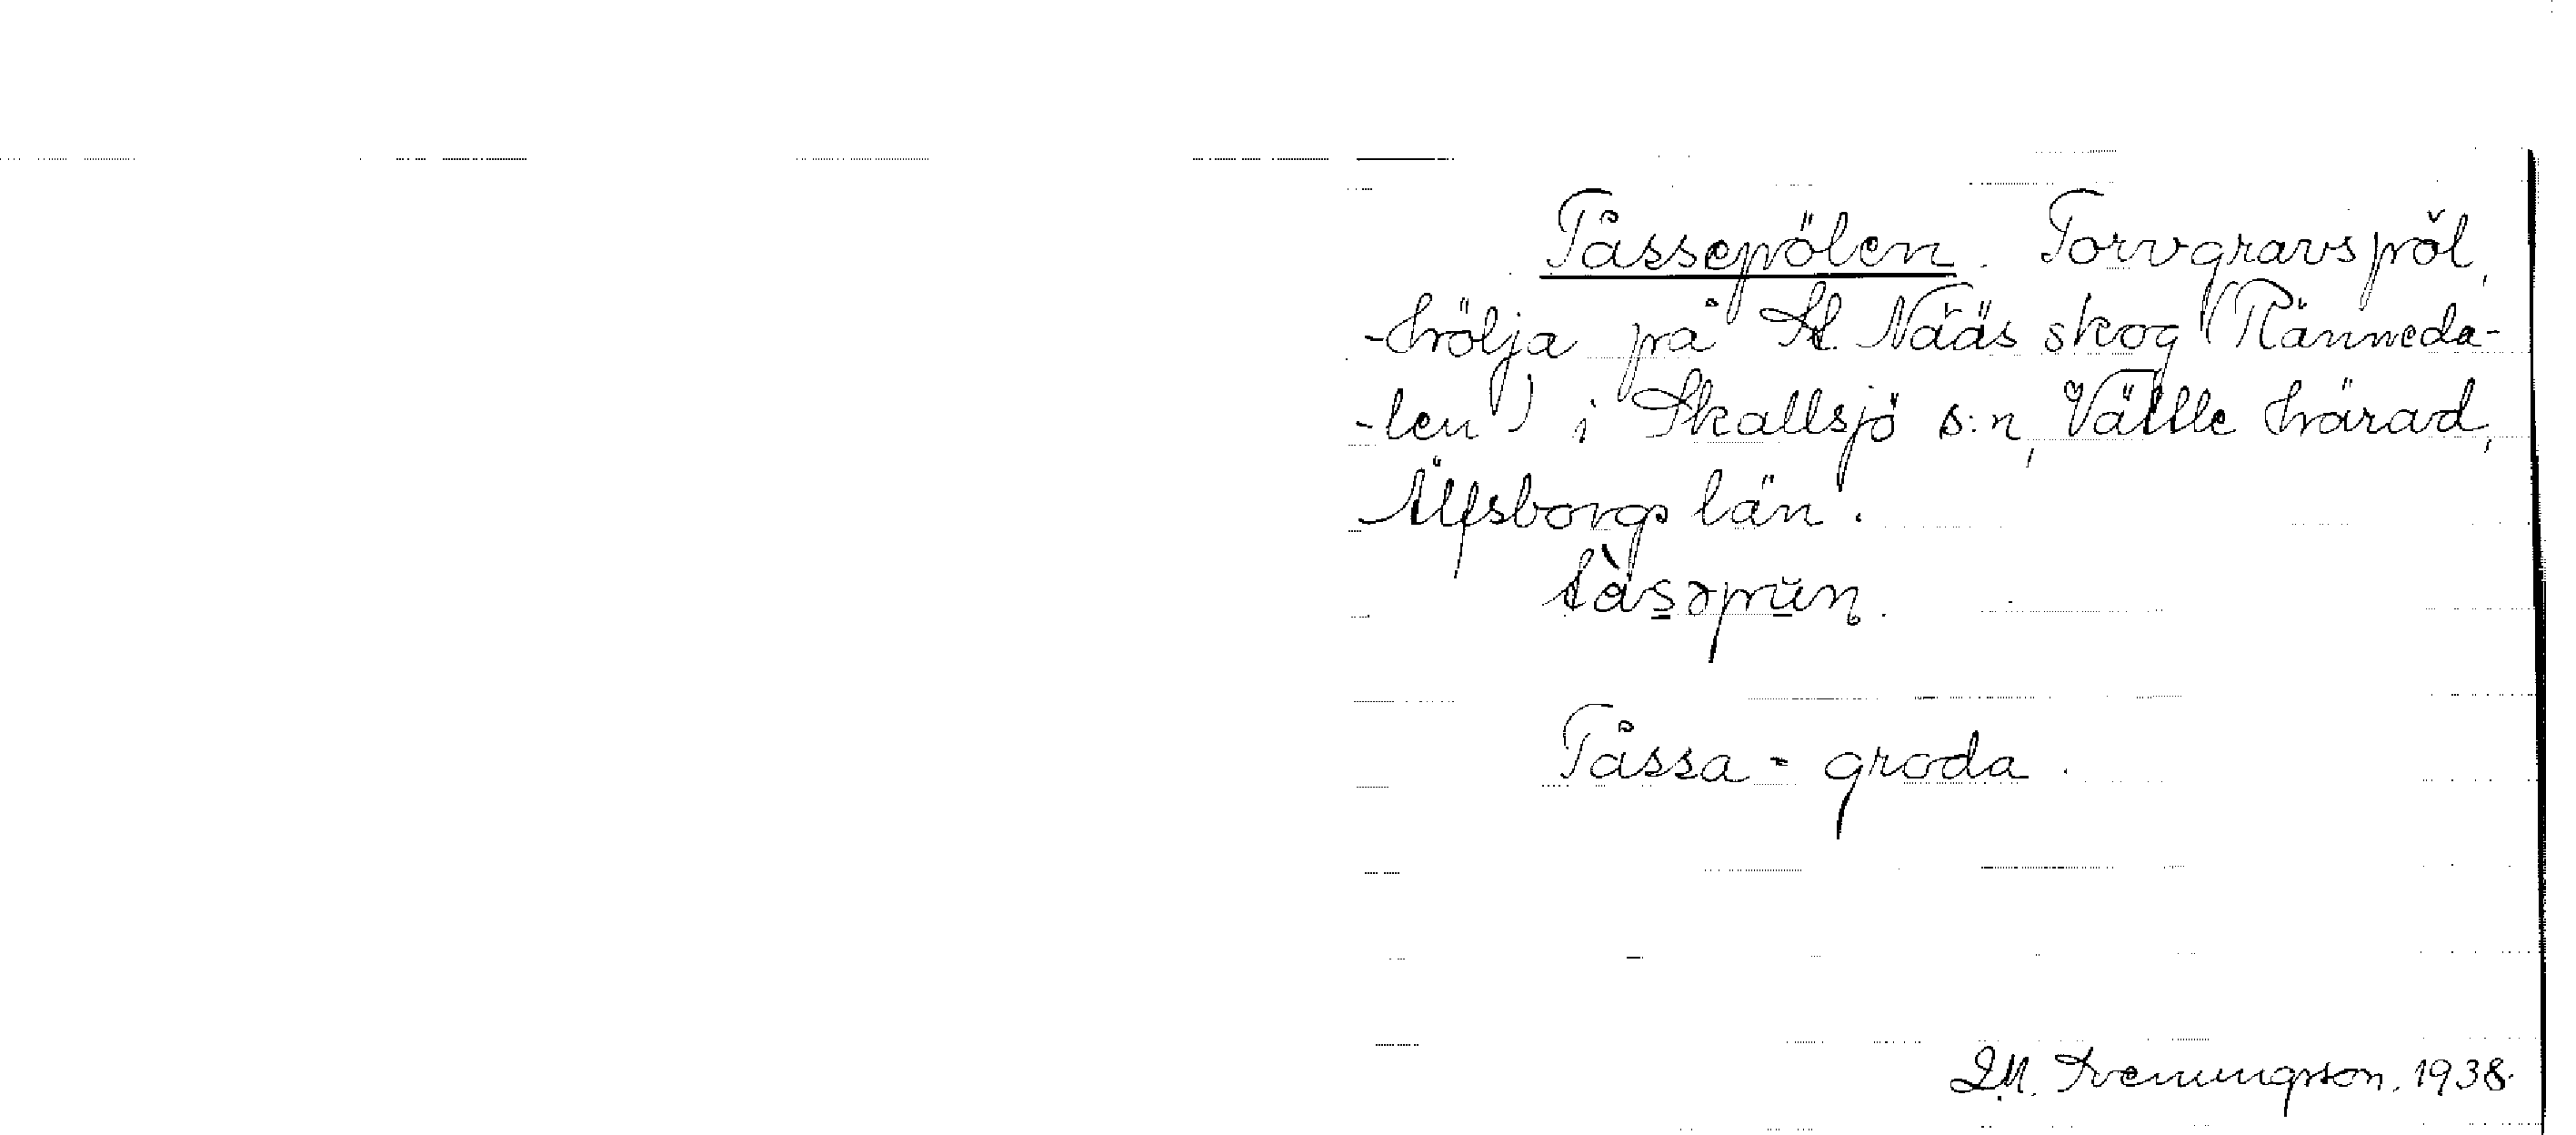 Tåssepölen. Torvgravspöl,
-hölja på St. Nääs skog (Ränneda-
-len) i Skallsjö s:n, Vättle härad,
Älfsborgs län.
tàsəpūn.
Tåssa = groda.
D.M. Svenungsson. 1938.